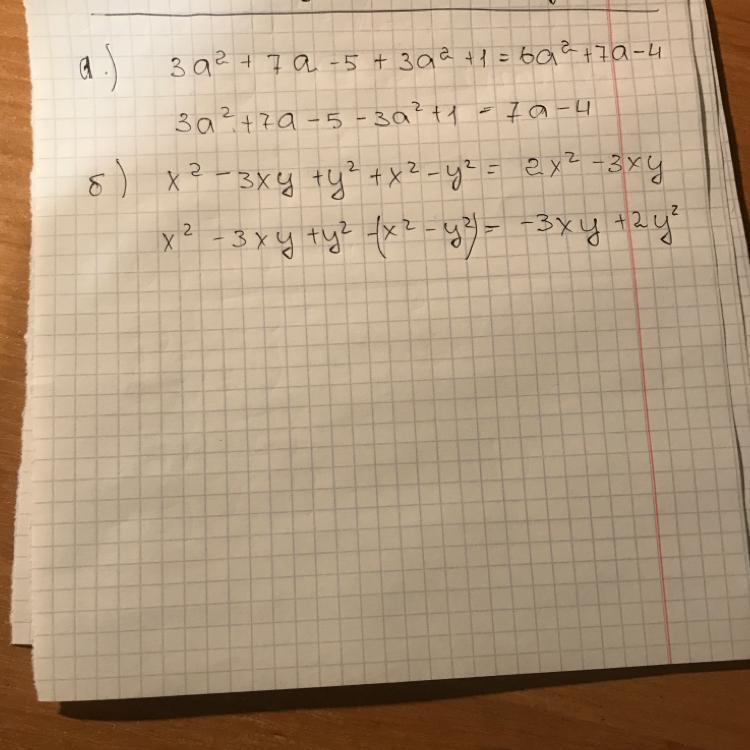 а.) 3a² + 7a - 5 + 3a² + 1 = 6a² + 7a - 4
3a² + 7a - 5 - 3a² + 1 = 7a - 4
б) x² - 3xy + y² + x² - y² = 2x² - 3xy
x² - 3xy + y² - (x² - y²) = -3xy + 2y²